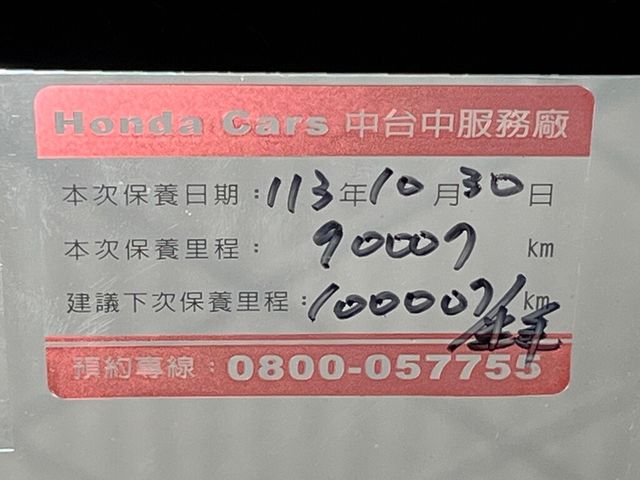 Honda Cars 中台中服務廠
本次保養日期：113年10月30日
本次保養里程： 90007 km
建議下次保養里程：100007/km
預約專線：0800-057755